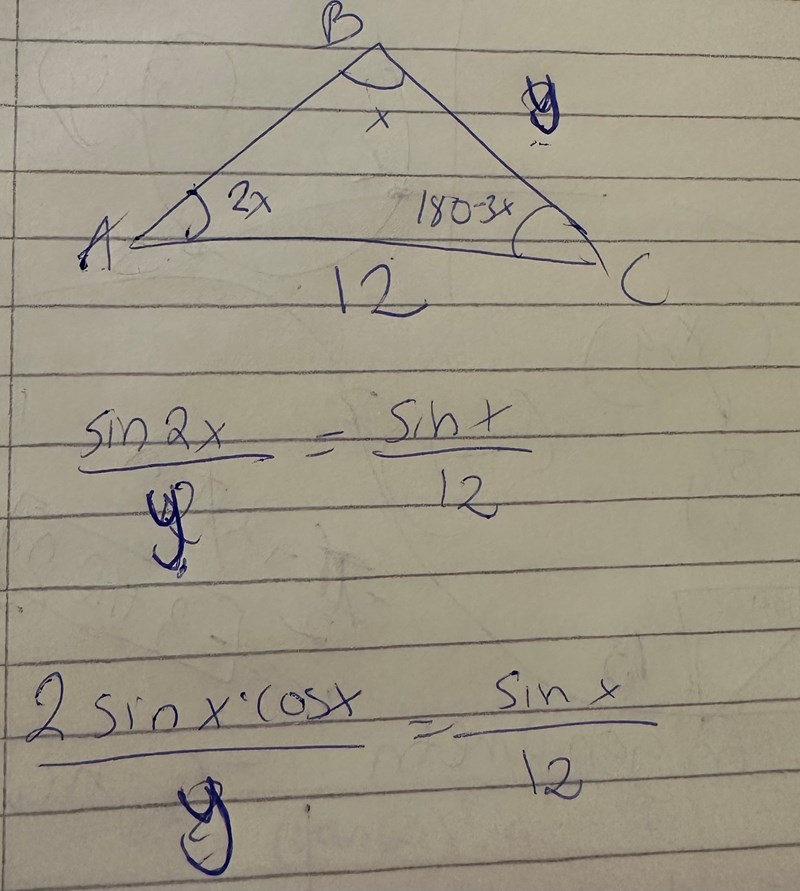 B
y
x
2x
180-3x
A
12
C
sin 2x / y = sin x / 12
2 sin x · cosx / y = sin x / 12